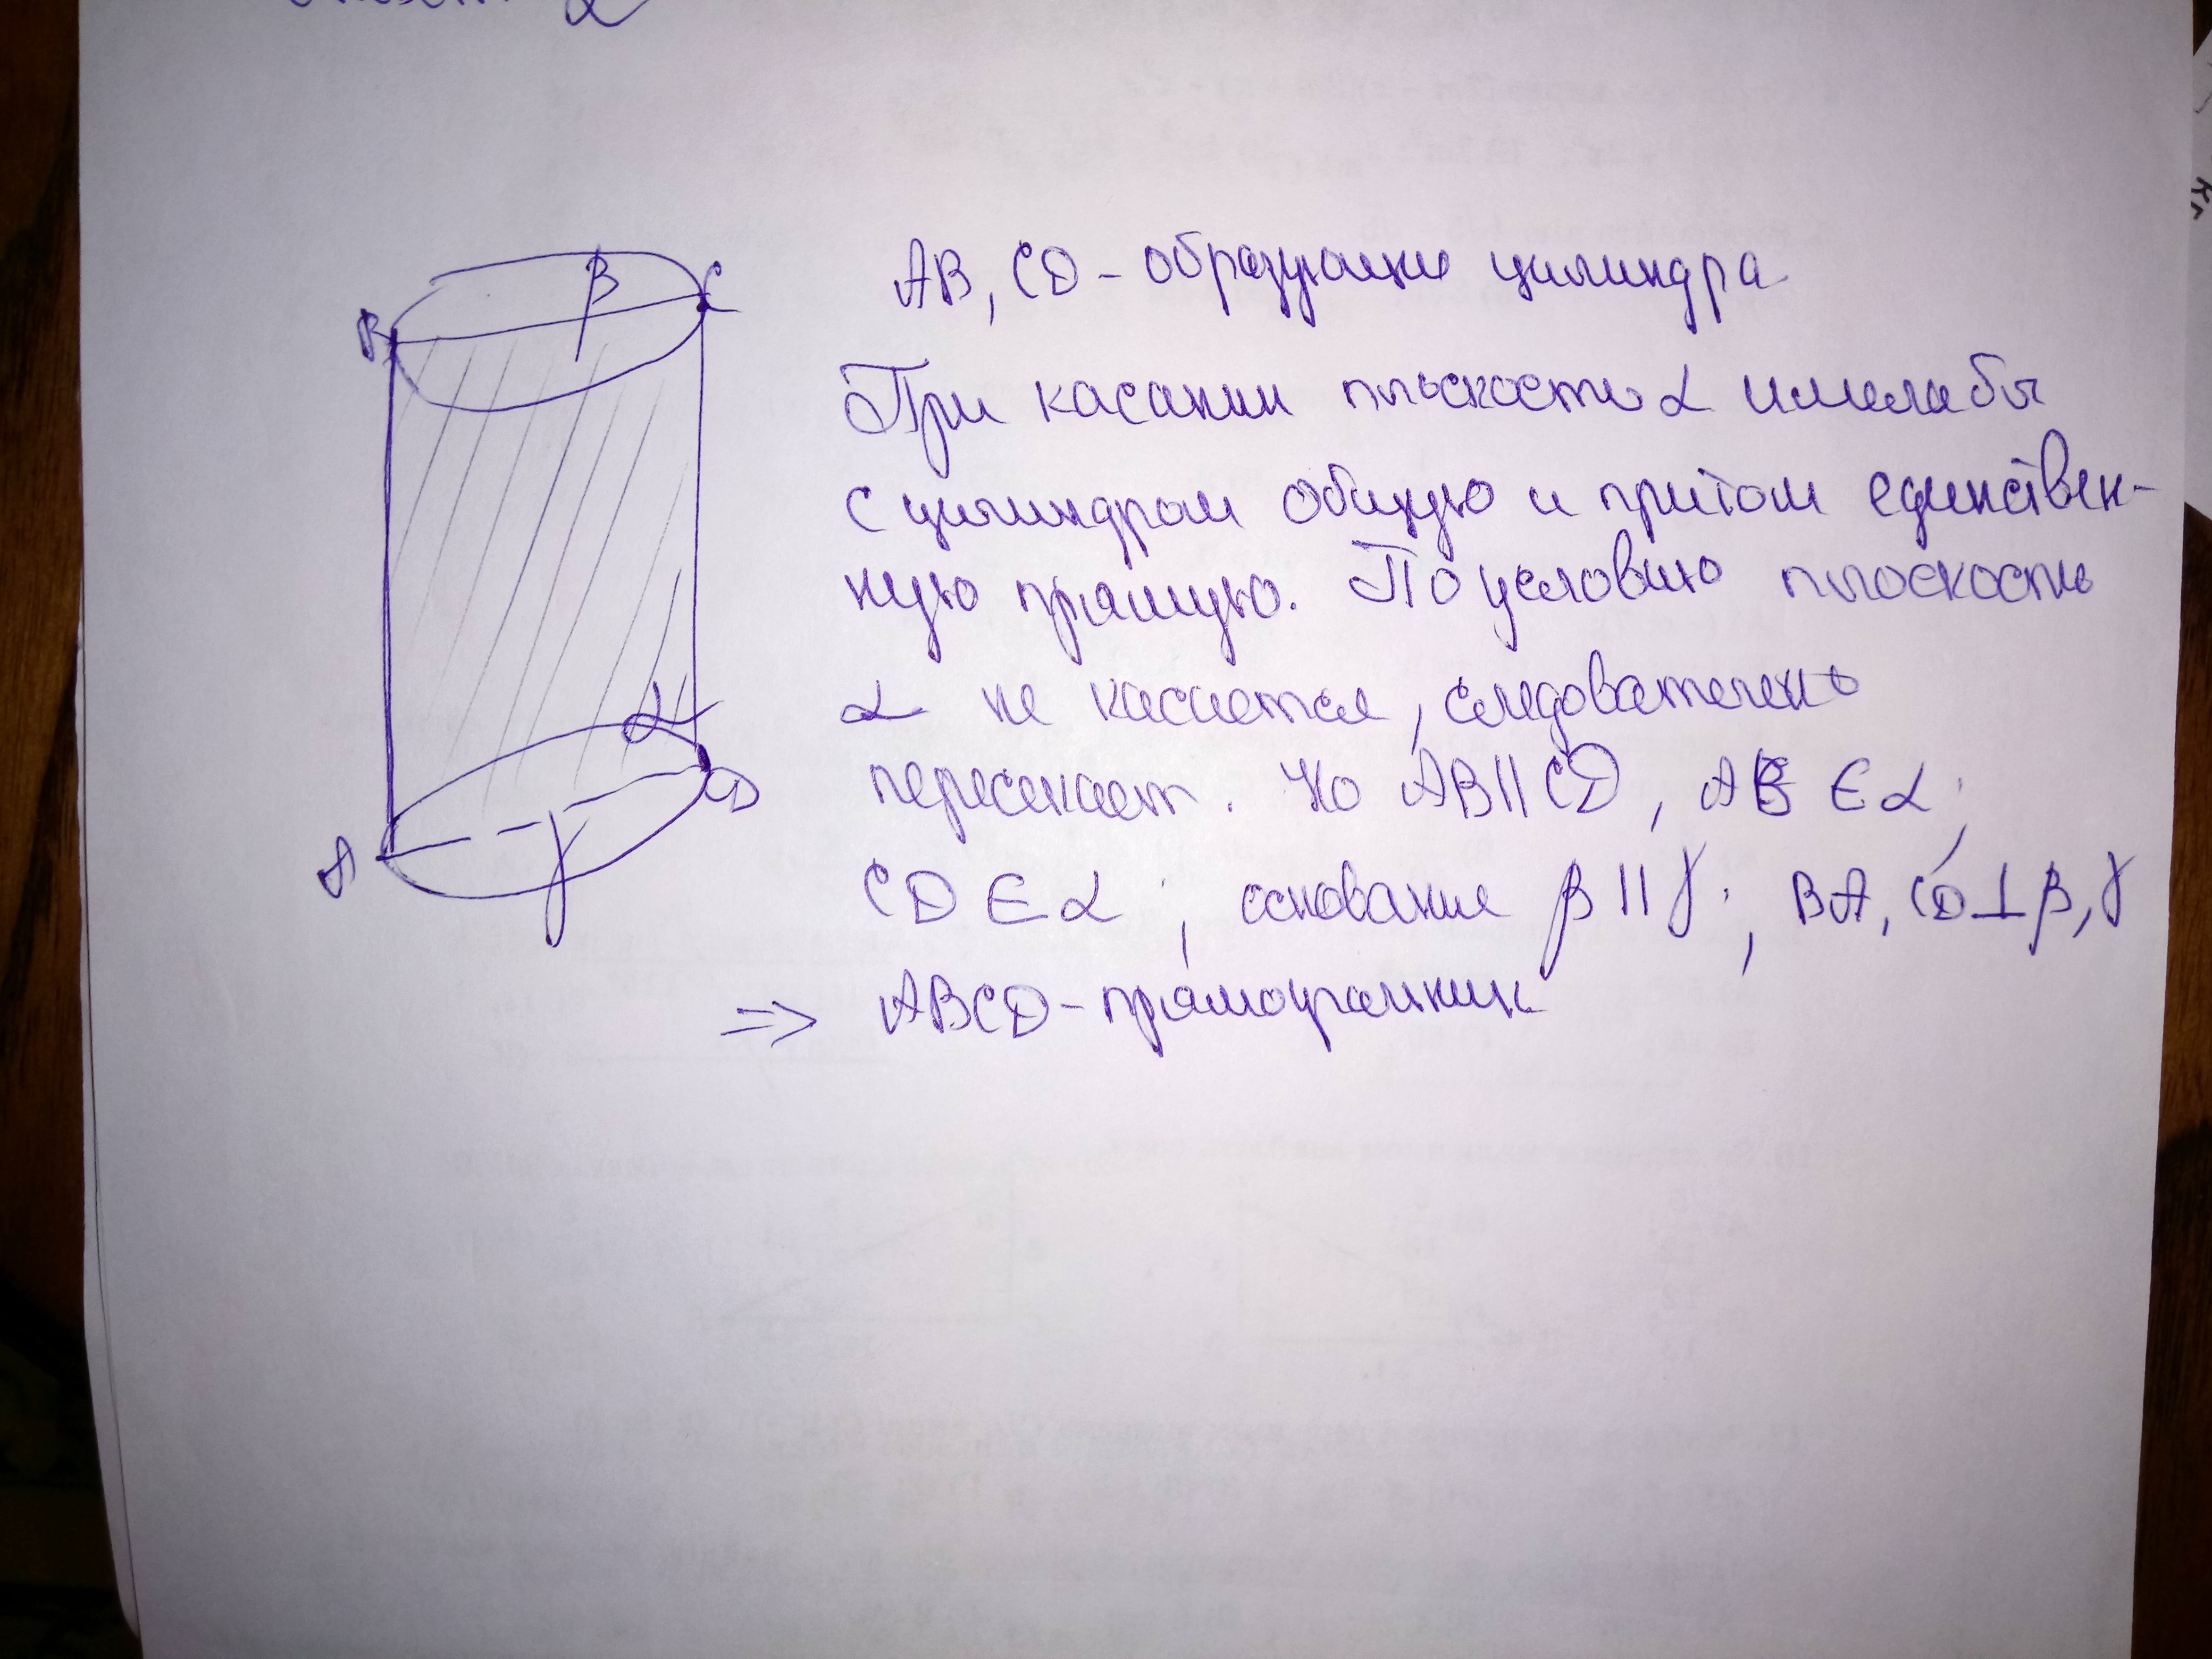 β
B
C
AB, CD - образующие цилиндра
При касании плоскость α имела бы
с цилиндром общую и притом единствен-
ную прямую. По условию плоскость
α не касается, следовательно
пересекает. Но AB || CD, AB ∈ α;
CD ∈ α; основание β || γ; BA, CD ⊥ β, γ
⇒ ABCD - прямоугольник
α
D
A
γ